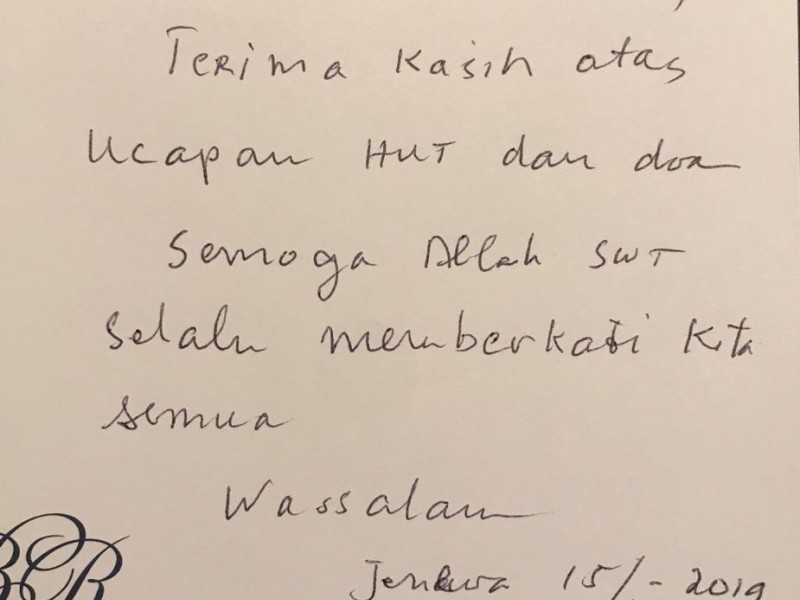 Terima Kasih atas
Ucapan HUT dan doa
Semoga Allah SWT
Selalu memberkati Kita
semua
Wassalam
Jenewa 15/- 2019